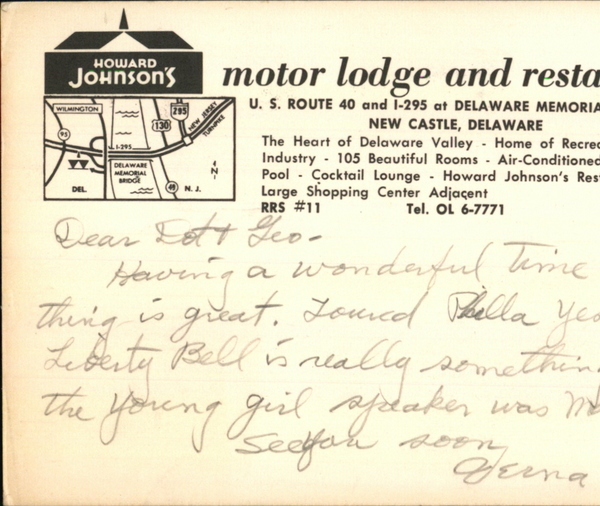 HOWARD
JOHNSON'S
motor lodge and resta
U. S. ROUTE 40 and I-295 at DELAWARE MEMORIA
NEW CASTLE, DELAWARE
The Heart of Delaware Valley - Home of Recrea
Industry - 105 Beautiful Rooms - Air-Conditioned
Pool - Cocktail Lounge - Howard Johnson's Rest
Large Shopping Center Adjacent
RRS #11 Tel. OL 6-7771
WILMINGTON
95
130
295
NEW JERSEY
TURNPIKE
I-295
DELAWARE
MEMORIAL
BRIDGE
DEL.
49
N. J.
N
Dear Dot + Geo-
Having a wonderful time
thing is great. Toured Philla Yes
Liberty Bell is really something
the young girl speaker was mo
See you soon
Verna